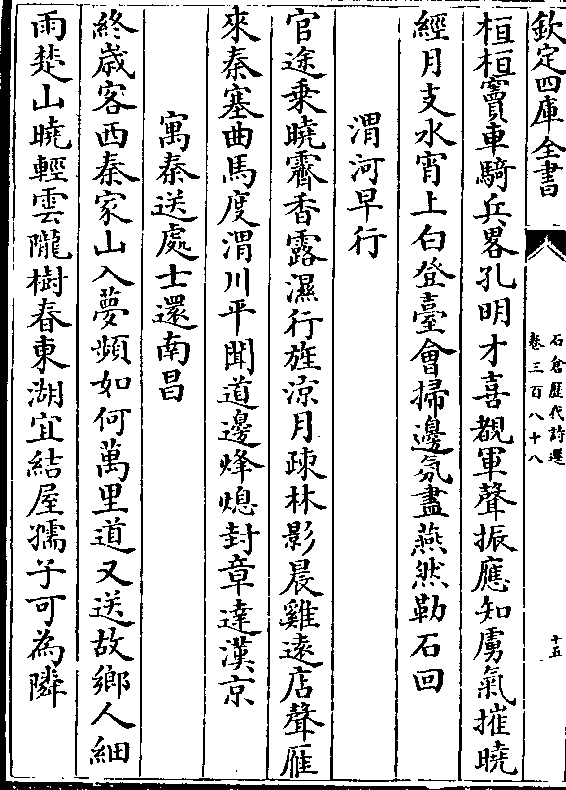 欽定四庫全書
石倉歷代詩選
卷三百八十八
十五
桓桓竇車騎兵畧孔明才喜覩軍聲振應知虜氣摧曉
經月支水宵上白登臺會掃邊氛盡燕然勒石回
渭河早行
官途乗曉霽香露濕行旌凉月疎林影晨雞逺店聲雁
來秦塞曲馬度渭川平聞道邊烽熄封章達漢京
寓秦送處士還南昌
終歳客西秦家山入夢頻如何萬里道又送故鄉人細
雨楚山曉輕雲隴樹春東湖宜結屋孺子可為隣